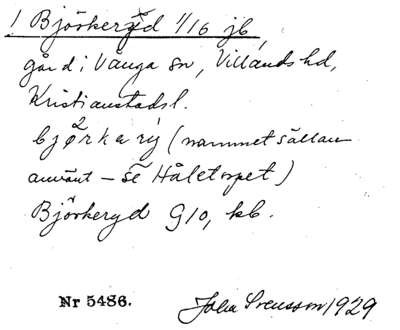 1 Björkeryd 1/16 jb,
gård i Vånga sn, Villands hd,
Kristianstads l.
bjørkarỹ (namnet sällan
använt – se Håletorpet)
Björkeryd G10, kb.
Nr 5486. John Svensson 1929